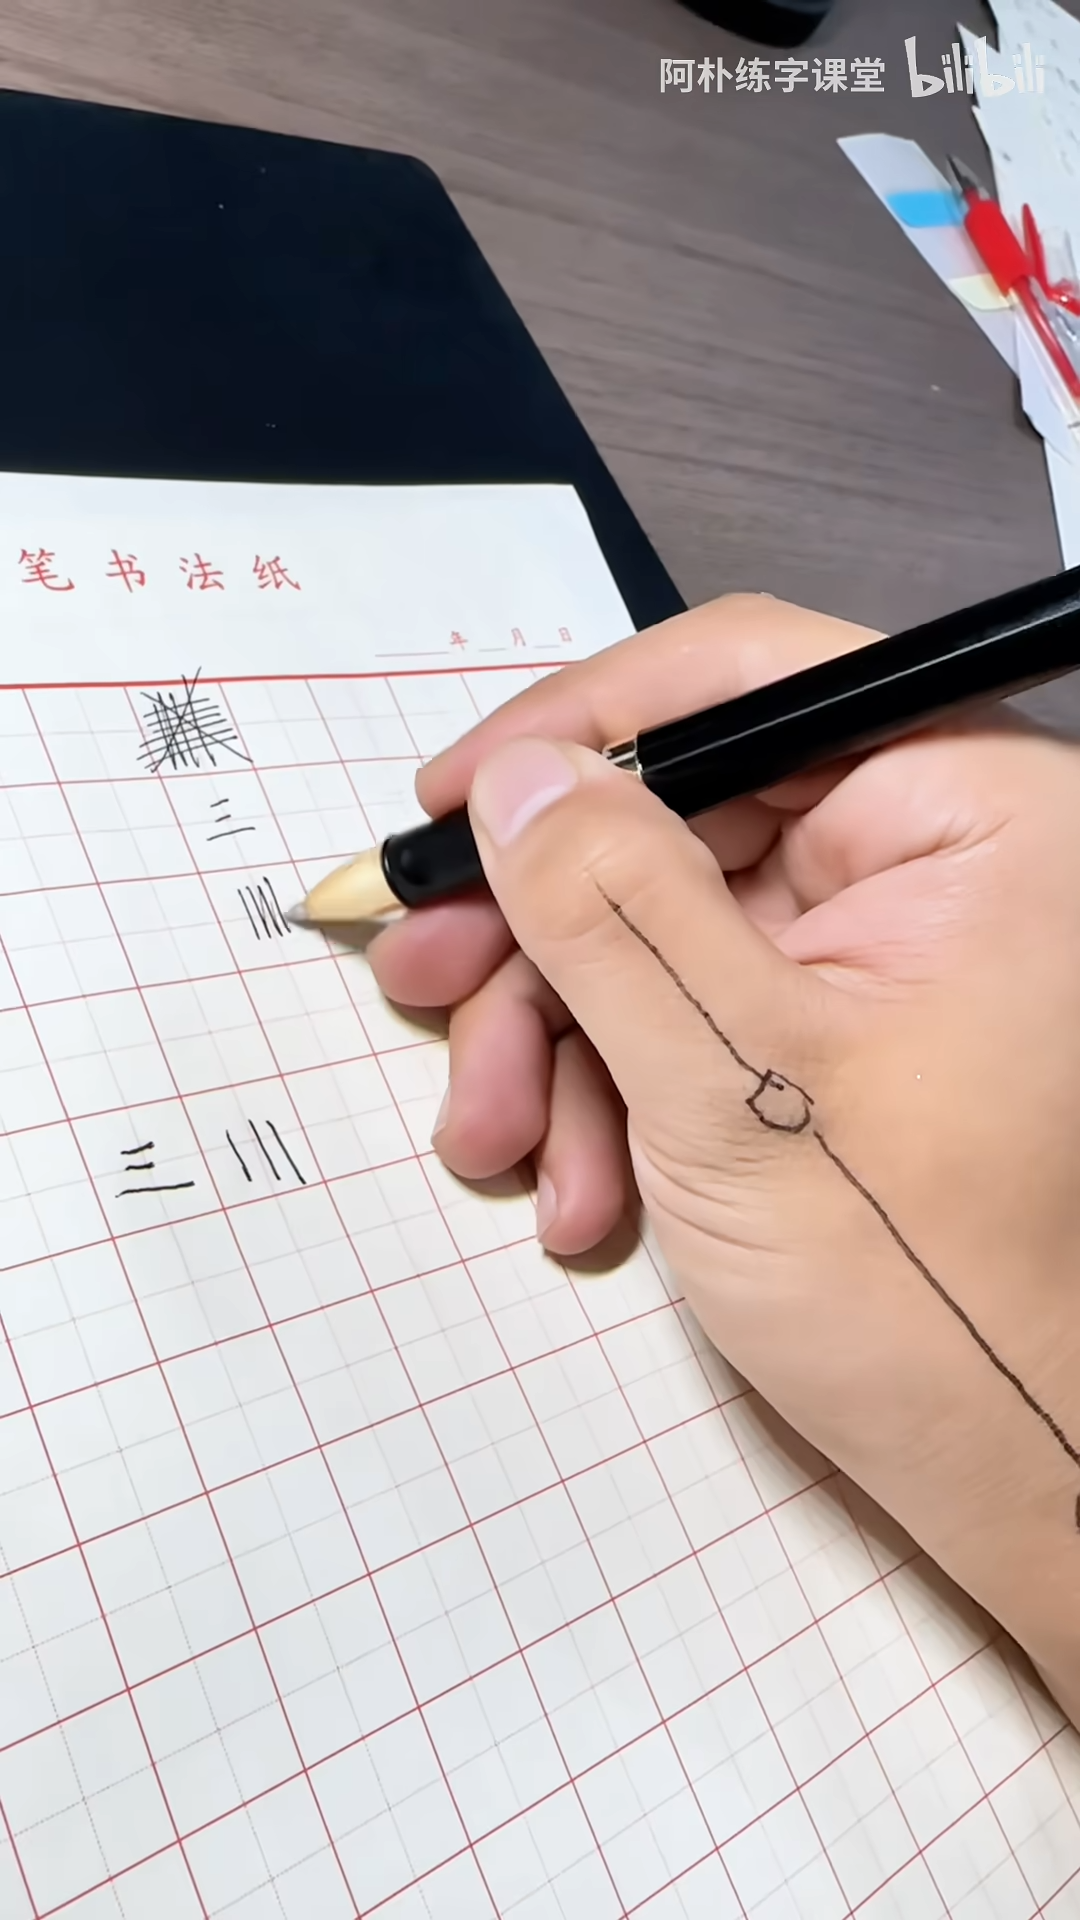 阿朴练字课堂 bilibili
笔书法纸
年 月 日
三
三 川